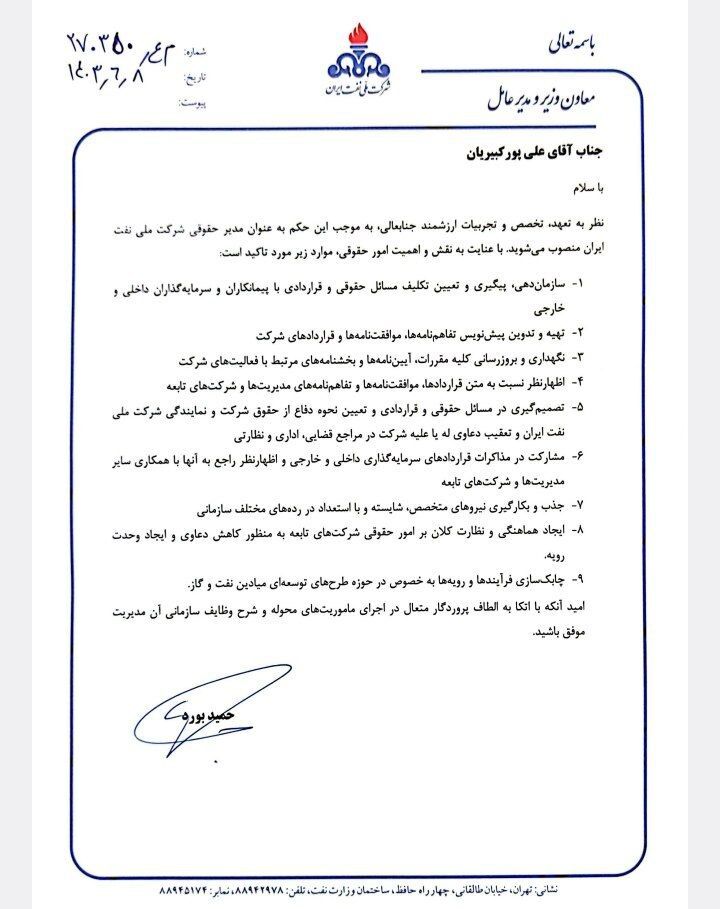 باسمه تعالی
شماره: م ع/ ۲۷۰۳۵۰
تاریخ: ۱۴۰۳/۶/۸
پیوست:
شرکت ملی نفت ایران
معاون وزیر و مدیر عامل
جناب آقای علی پورکبیریان
با سلام
نظر به تعهد، تخصص و تجربیات ارزشمند جنابعالی، به موجب این حکم به عنوان مدیر حقوقی شرکت ملی نفت
ایران منصوب می‌شوید. با عنایت به نقش و اهمیت امور حقوقی، موارد زیر مورد تاکید است:
۱- سازمان‌دهی، پیگیری و تعیین تکلیف مسائل حقوقی و قراردادی با پیمانکاران و سرمایه‌گذاران داخلی و
خارجی
۲- تهیه و تدوین پیش‌نویس تفاهم‌نامه‌ها، موافقت‌نامه‌ها و قراردادهای شرکت
۳- نگهداری و بروزرسانی کلیه مقررات، آیین‌نامه‌ها و بخشنامه‌های مرتبط با فعالیت‌های شرکت
۴- اظهارنظر نسبت به متن قراردادها، موافقت‌نامه‌ها و تفاهم‌نامه‌های مدیریت‌ها و شرکت‌های تابعه
۵- تصمیم‌گیری در مسائل حقوقی و قراردادی و تعیین نحوه دفاع از حقوق شرکت و نمایندگی شرکت ملی
نفت ایران و تعقیب دعاوی له یا علیه شرکت در مراجع قضایی، اداری و نظارتی
۶- مشارکت در مذاکرات قراردادهای سرمایه‌گذاری داخلی و خارجی و اظهارنظر راجع به آنها با همکاری سایر
مدیریت‌ها و شرکت‌های تابعه
۷- جذب و بکارگیری نیروهای متخصص، شایسته و با استعداد در رده‌های مختلف سازمانی
۸- ایجاد هماهنگی و نظارت کلان بر امور حقوقی شرکت‌های تابعه به منظور کاهش دعاوی و ایجاد وحدت
رویه.
۹- چابک‌سازی فرآیندها و رویه‌ها به خصوص در حوزه طرح‌های توسعه‌ای میادین نفت و گاز.
امید آنکه با اتکا به الطاف پروردگار متعال در اجرای ماموریت‌های محوله و شرح وظایف سازمانی آن مدیریت
موفق باشید.
حمید بورد
نشانی: تهران، خیابان طالقانی، چهارراه حافظ، ساختمان وزارت نفت، تلفن: ۸۸۹۴۲۹۷۸، نمابر: ۸۸۹۴۵۱۷۴